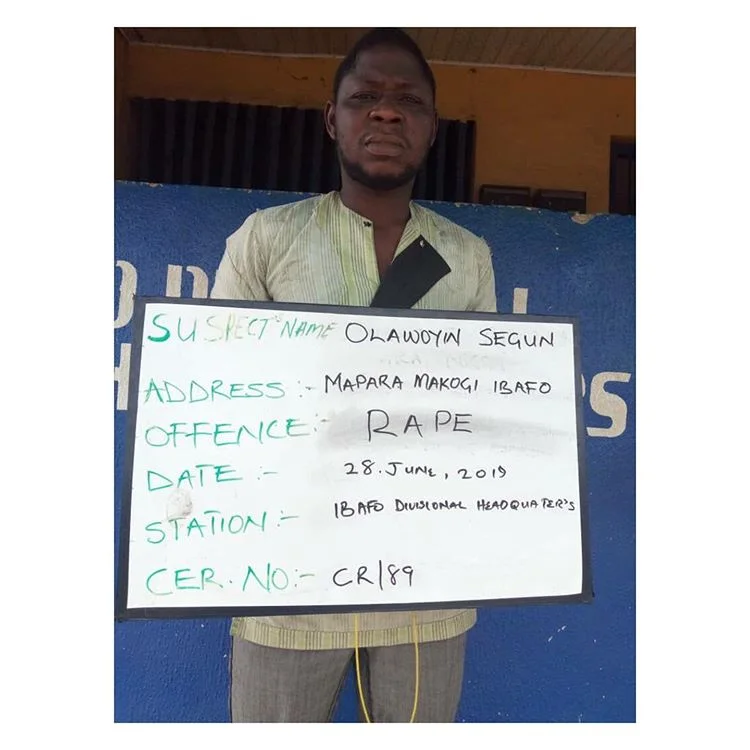 SUSPECT NAME OLAWOYIN SEGUN
ADDRESS :- MAPARA MAKOGI IBAFO
OFFENCE:- RAPE
DATE :- 28.JUNE, 2019
STATION :- IBAFO DIVISIONAL HEADQUATER'S
CER. NO:- CR/89